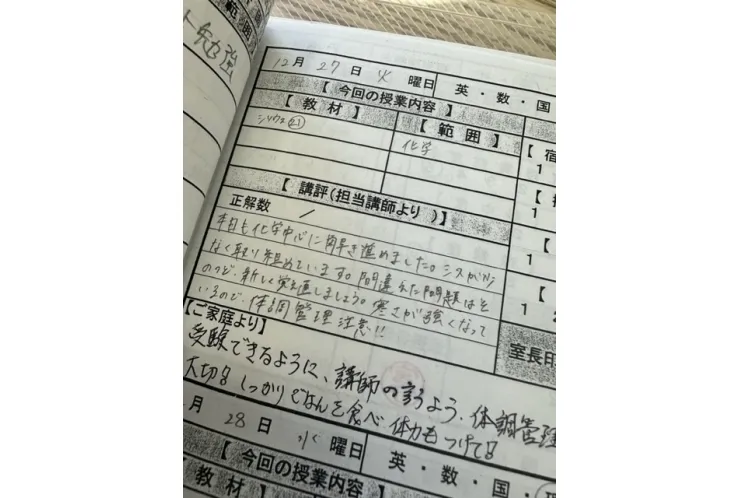 勉強
範囲
12月27日 火曜日 英・数・国
【今回の授業内容】
【教材】 【範囲】
シリウス21 化学
1
【講評(担当講師より )】
正解数 /
本日も化学中心に解き進めました。ミスが少
なく取り組めています。間違えた問題はそ
のつど、新しく覚え直しましょう。寒さが強くなって
いるので、体調管理注意!!
1
室長印
【ご家庭より】
受験できるように、講師の言うよう、体調管理
大切! しっかりごはんを食べ体力もつけて!
月28日 水曜日 英・数・国・
【今回の授業内容】
【教材】 【範囲】